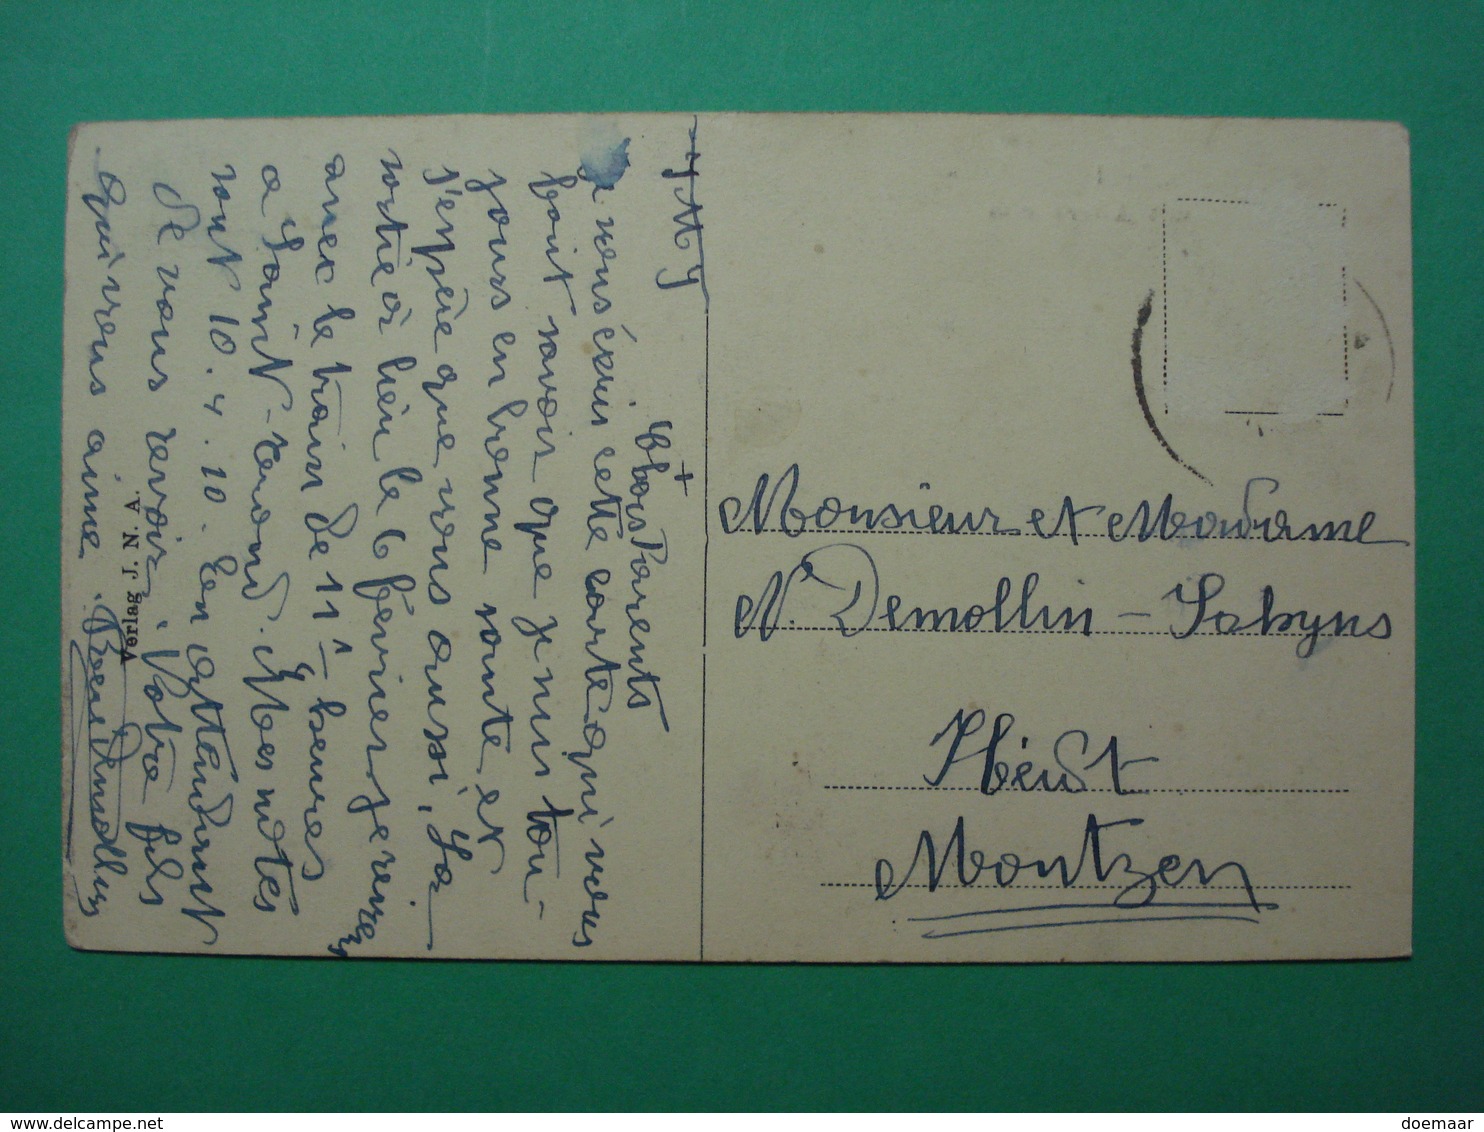 + J M J
Chers Parents
Je vous écris cette carte qui vous
fait savoir que je suis tou-
jours en bonne santé et
j'espère que vous aussi, La
sortie à lieu le 6 février je viens
avec le train de 11 heures
a Saint-vaond. Mes notes
sont 10.4.10. En attendant
de vous revoir, Votre fils
qui vous aime.
Demollin
Verlag J. N. A.
Monsieur et Madame
N. Demollin - Schyns
Heidt
Montzen
www.delcampe.net
doemaar